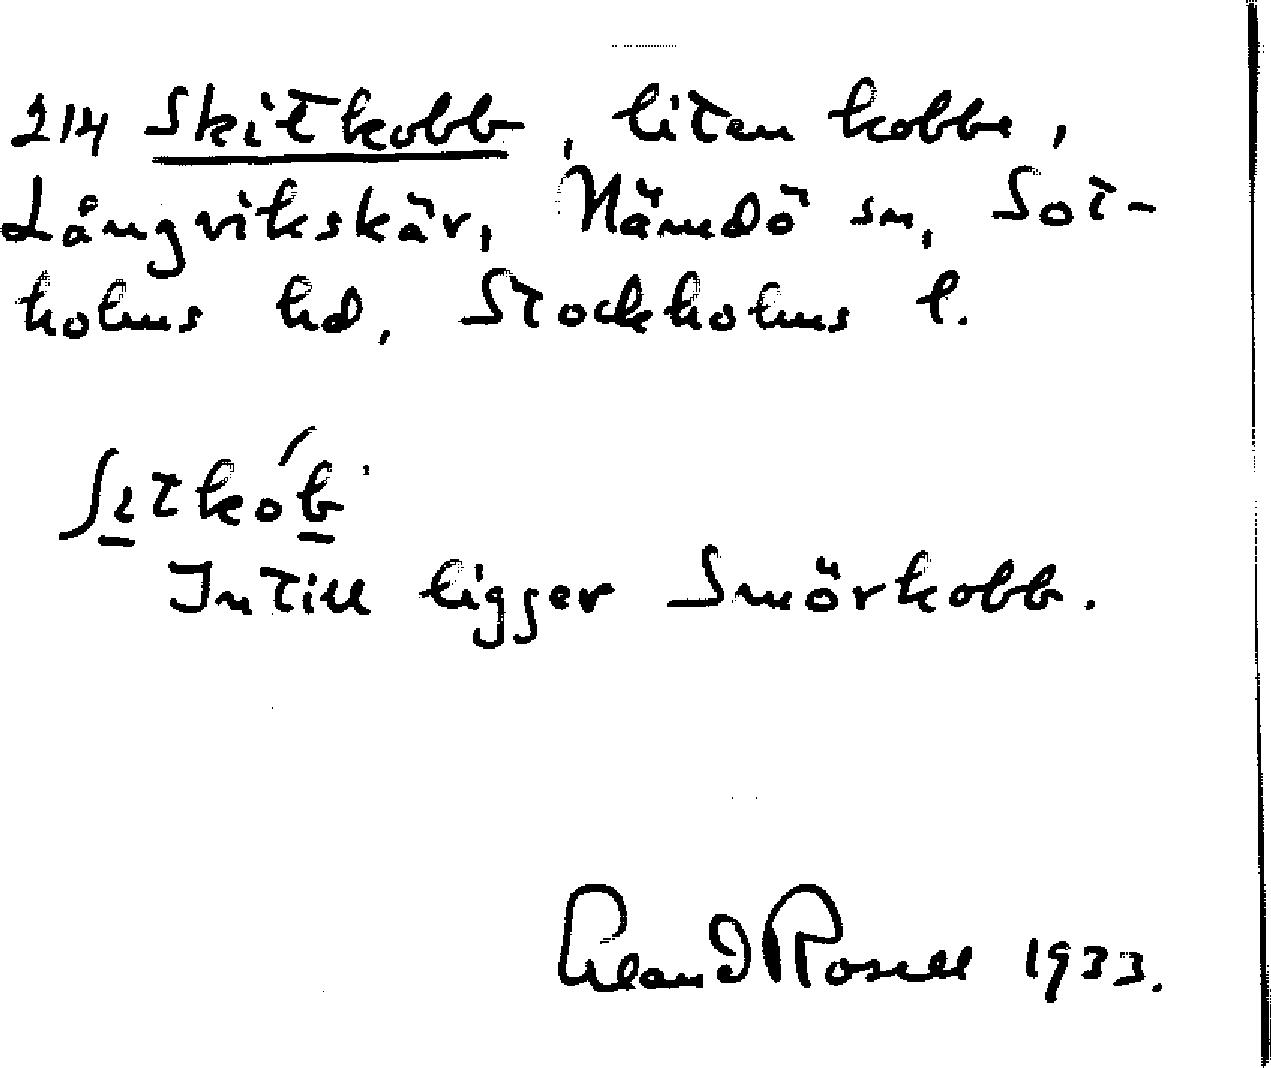 214 Skitkobb, liten kobbe,
Långvikskär, Nämdö sn, Sot-
holms hd, Stockholms l.
ʃıtkób
Intill ligger Smörkobb.
Rosell 1933.